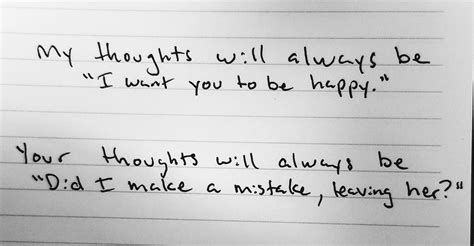 My thoughts will always be
"I want you to be happy."
Your thoughts will always be
"Did I make a mistake, leaving her?"